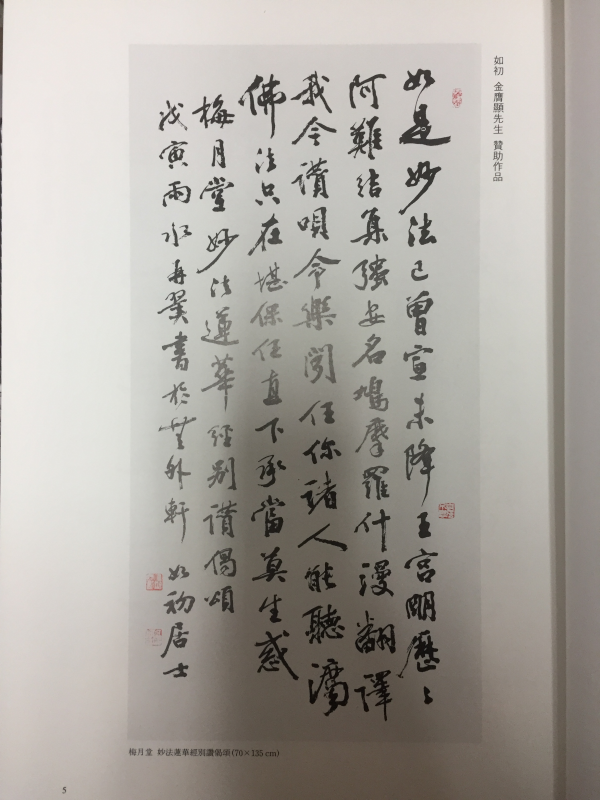 如初 金膺顯先生 贊助作品
如是妙法已曾宣未降王宮明歷〻
阿難結集强安名鳩摩羅什謾翻譯
我今讚唄令樂聞任你諸人能聽
佛法只在堪保任直下承當莫生惑
梅月堂妙法蓮華經別讚偈頌
戊寅雨水再翼書於無外軒 如初居士
梅月堂 妙法蓮華經別讚偈頌(70×135cm)
5